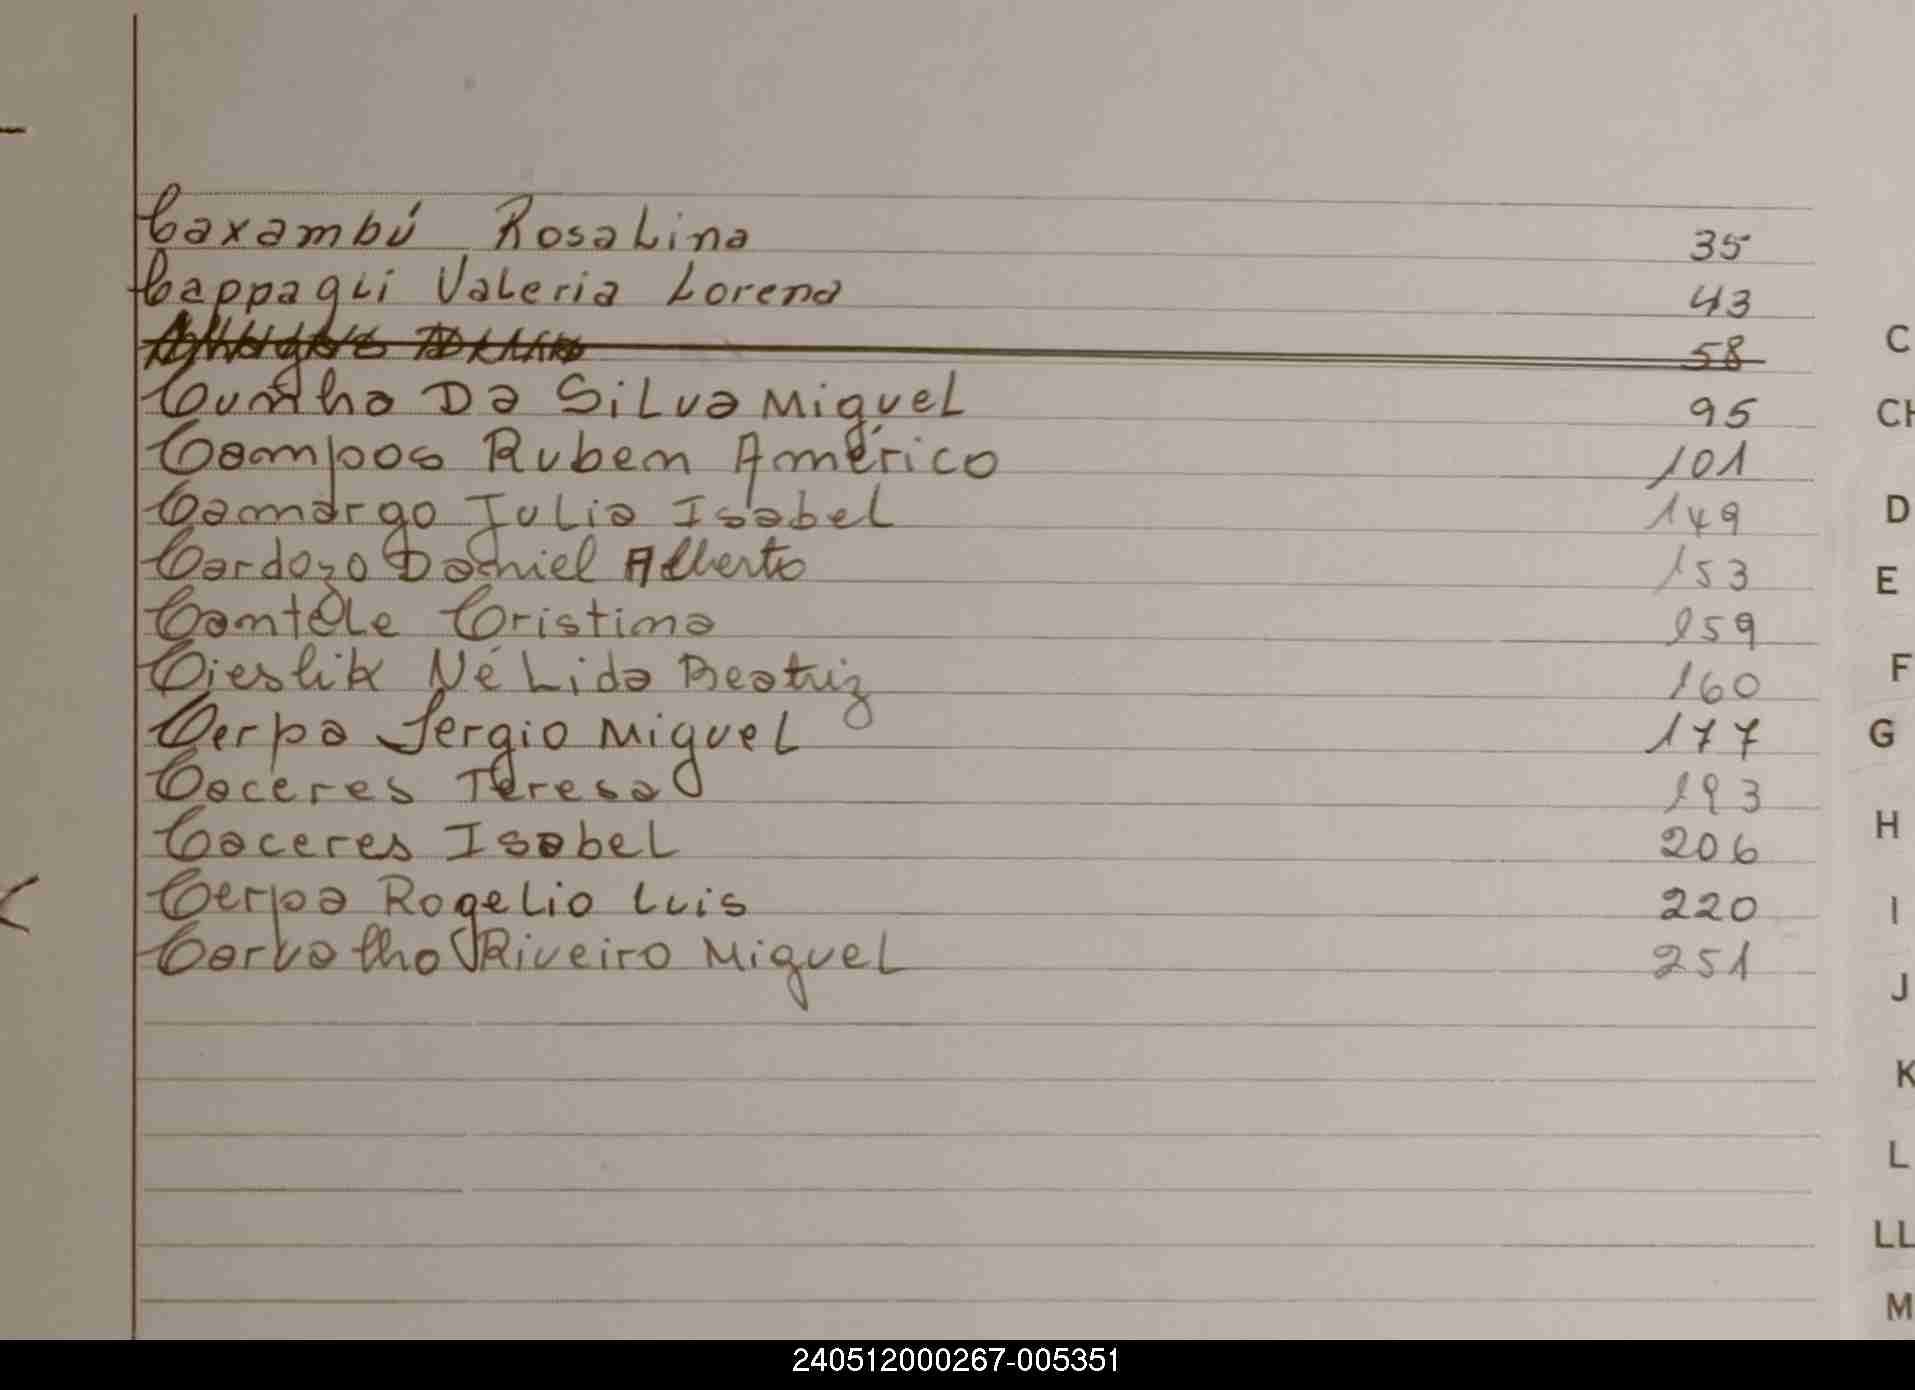 Caxambú Rosalina 35
Cappagli Valeria Lorena 43
58
Cuntha Da Silva Miguel 95
Campos Ruben Américo 101
Camargo Julia Isabel 149
Cardozo Daniel Alberto 153
Cantele Cristina 159
Cieslik Nélida Beatriz 160
Cerpa Sergio Miguel 177
Caceres Teresa 193
Caceres Isabel 206
Cerpa Rogelio Luis 220
Carvalho Riveiro Miguel 251
C
CH
D
E
F
G
H
I
J
K
L
LL
M
240512000267-005351